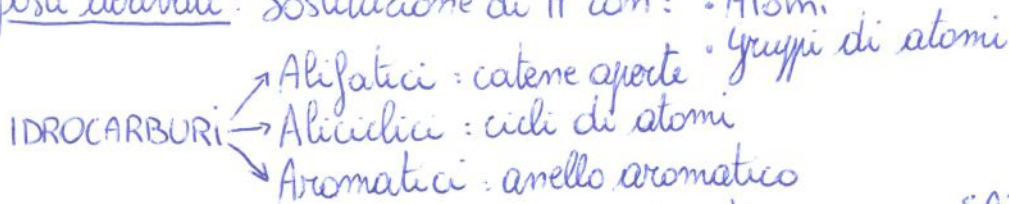 derivati: Sostituzione di H con: • Atomi
• Gruppi di atomi
IDROCARBURI
→ Alifatici: catene aperte
→ Aliciclici: cicli di atomi
→ Aromatici: anello aromatico